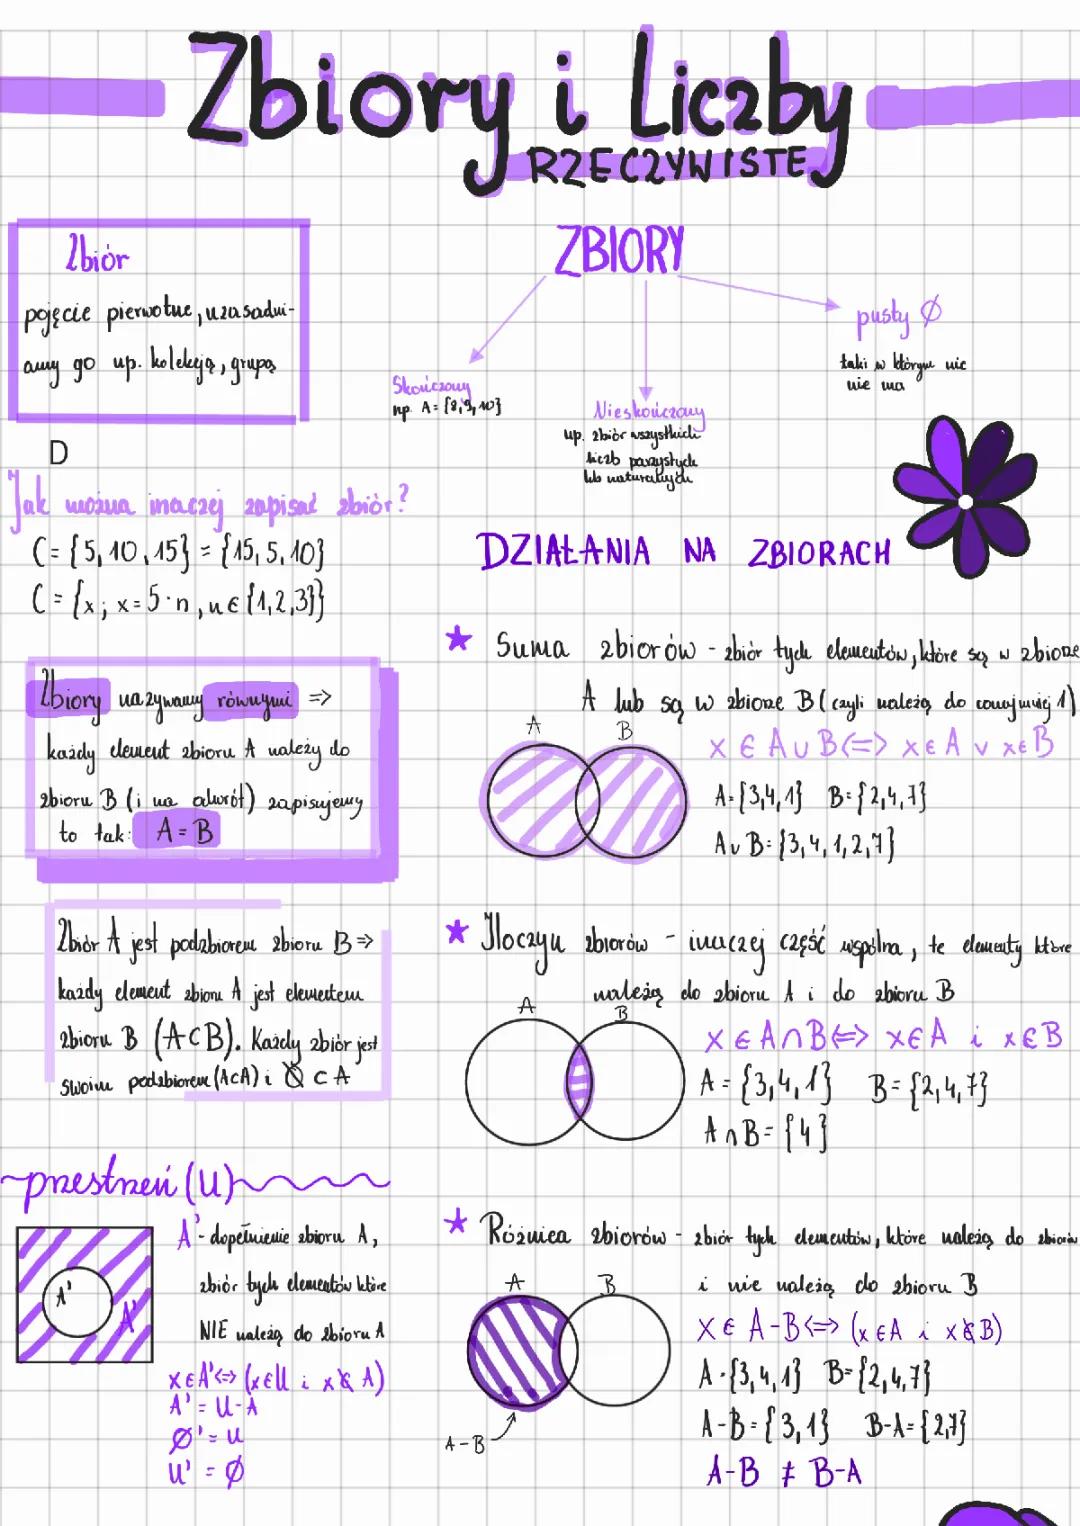 Zbiory i Liczby
RZECZYWISTE
Zbiór
pojęcie pierwotne, uzasadni-
amy go np. kolekcją, grupą
D
Jak można inaczej zapisać zbiór?
C = {5, 10, 15} = {15, 5, 10}
C = {x; x = 5·n, n ∈ {1,2,3}}
Zbiory nazywamy równymi =>
każdy element zbioru A należy do
zbioru B (i na odwrót) zapisujemy
to tak: A = B
Zbiór A jest podzbiorem zbioru B =>
każdy element zbioru A jest elementem
zbioru B (A⊂B). Każdy zbiór jest
swoim podzbiorem (A⊂A) i ∅ ⊂ A
przestrzeń (U)
A'
A'
A' - dopełnienie zbioru A,
zbiór tych elementów które
NIE należą do zbioru A
x∈A' <=> (x∈U i x∉A)
A' = U-A
∅' = U
U' = ∅
ZBIORY
Skończony
np. A = {8, 9, 10}
Nieskończony
np. zbiór wszystkich
liczb parzystych
lub naturalnych
pusty ∅
taki w którym nic
nie ma
DZIAŁANIA NA ZBIORACH
★ Suma zbiorów - zbiór tych elementów, które są w zbiorze
A lub są w zbiorze B (czyli należą do conajmniej 1)
A B
x ∈ A∪B <=> x∈A ∨ x∈B
A = {3,4,1} B = {2,4,7}
A∪B = {3,4,1,2,7}
★ Iloczyn zbiorów - inaczej część wspólna, te elementy które
należą do zbioru A i do zbioru B
A B
x ∈ A∩B <=> x∈A i x∈B
A = {3,4,1} B = {2,4,7}
A∩B = {4}
★ Różnica zbiorów - zbiór tych elementów, które należą do zbiorów
i nie należą do zbioru B
A B
A-B
x ∈ A-B <=> (x∈A i x∉B)
A = {3,4,1} B = {2,4,7}
A-B = {3,1} B-A = {2,7}
A-B ≠ B-A